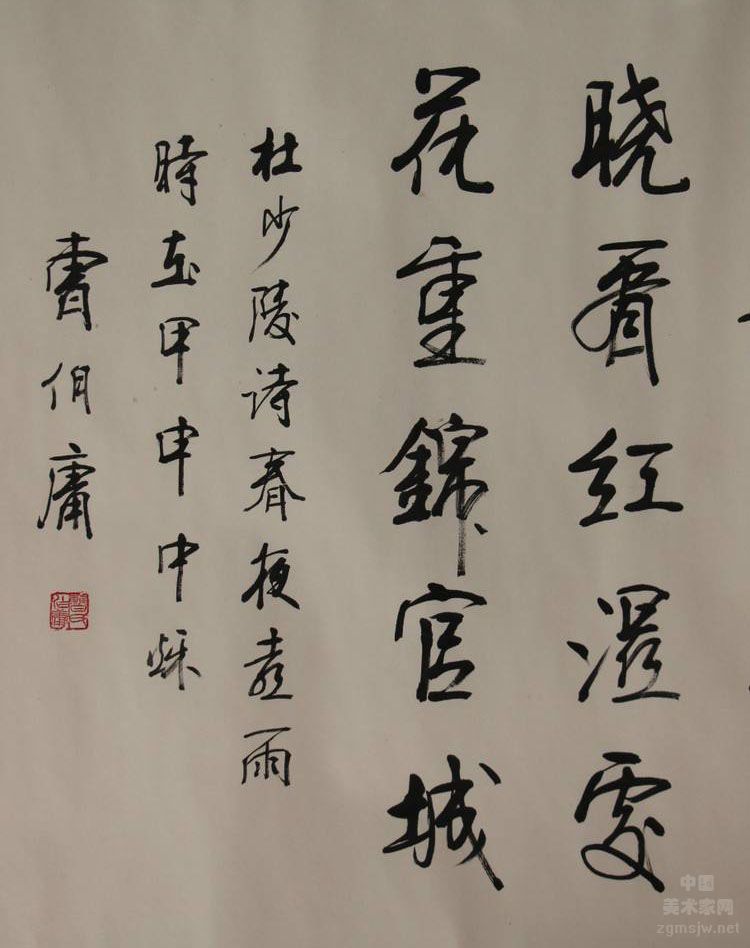 晓看红湿处
花重錦官城
杜少陵诗春夜喜雨
時在甲申中秋
曹伯庸
中国
美术家网
zgmsjw.net